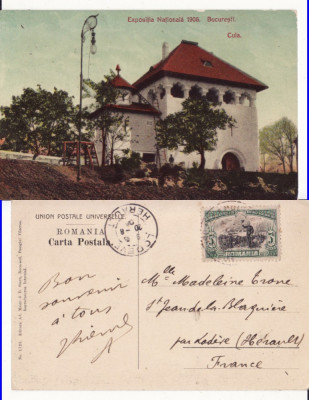 Expoziția Națională 1906. București.
Cula.
UNION POSTALE UNIVERSELLE
ROMANIA
Carta Postala
LODEVE
HERAULT
5
5
ROMANIA
Bon
souvenir
à tous
Mlle Madeleine Crone
St Jean de la Blaquière
par Lodève (Hérault)
France